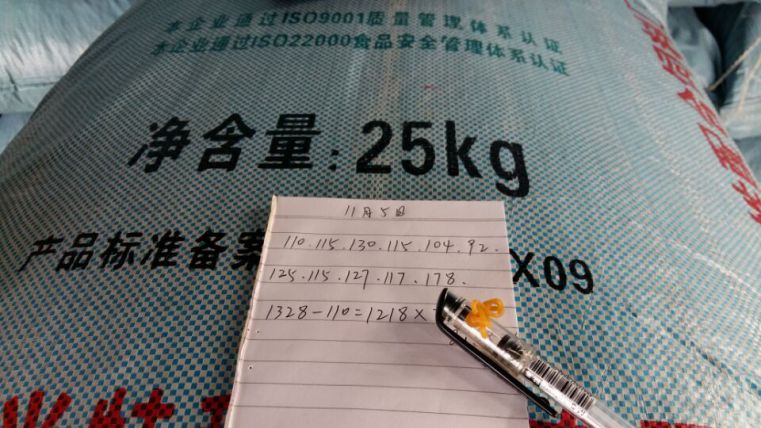 本企业通过ISO9001质量管理体系认证
本企业通过ISO22000食品安全管理体系认证
净含量:25kg
产品标准备案
X09
11月5日
110.115.130.115.104.92.
125.115.127.117.178.
1328-110=1218×